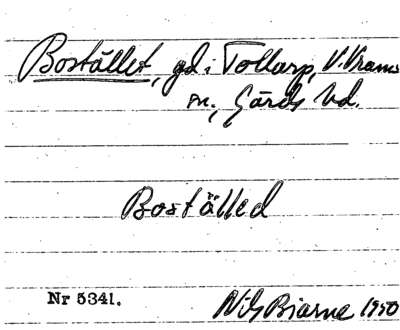 Bostället, gd i Tollarp, V. Vrams
sn., Gärds hd.
Boställed
Nr 5341.
Nils Bjarne 1950